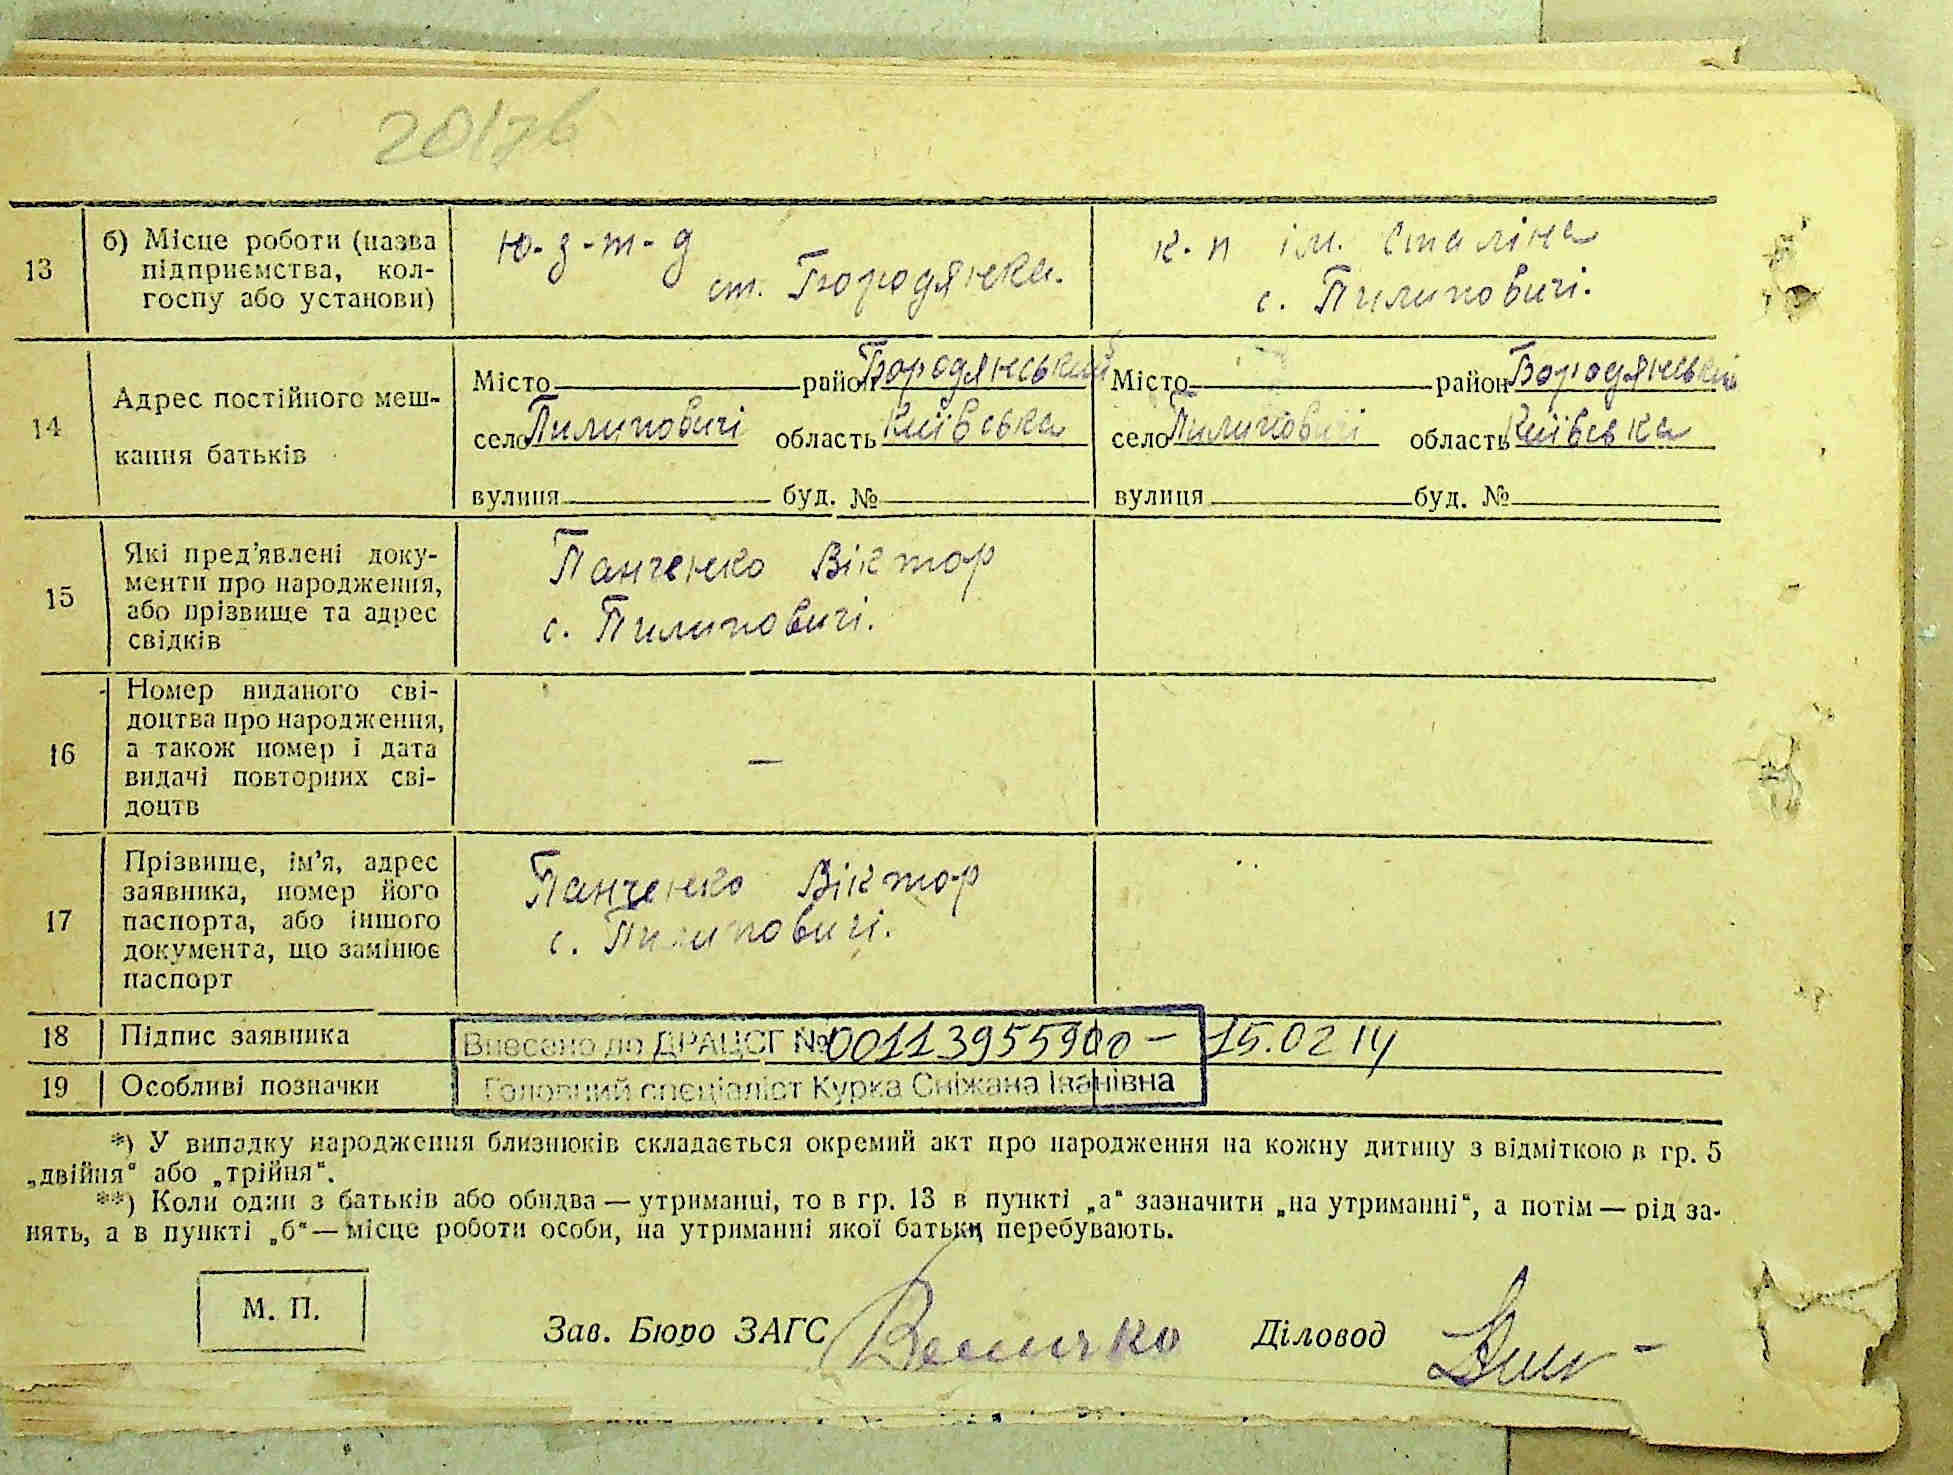 20/76
13 б) Місце роботи (назва підприємства, колгоспу або установи)
ю-з-т-д
ст. Бородянка.
к-п ім. Сталіна
с. Пилиповичі.
14 Адрес постійного мешкання батьків
Місто район Бородянський
село Пилиповичі область Київська
вулиця буд. №
Місто район Бородянський
село Пилиповичі область Київська
вулиця буд. №
15 Які пред'явлені документи про народження, або прізвище та адрес свідків
Панченко Віктор
с. Пилиповичі.
16 Номер виданого свідоцтва про народження, а також номер і дата видачі повторних свідоцтв
—
17 Прізвище, ім'я, адрес заявника, номер його паспорта, або іншого документа, що замінює паспорт
Панченко Віктор
с. Пилиповичі.
18 Підпис заявника
Внесено до ДРАЦСГ № 00113955900 – 15.02 14
19 Особливі позначки
Головний спеціаліст Курка Сніжана Іванівна
*) У випадку народження близнюків складається окремий акт про народження на кожну дитину з відміткою в гр. 5
„двійня" або „трійня".
**) Коли один з батьків або обидва — утриманці, то в гр. 13 в пункті „а" зазначити „на утриманні", а потім — рід за-
нять, а в пункті „б" — місце роботи особи, на утриманні якої батьки перебувають.
М. П.
Зав. Бюро ЗАГС Величко Діловод